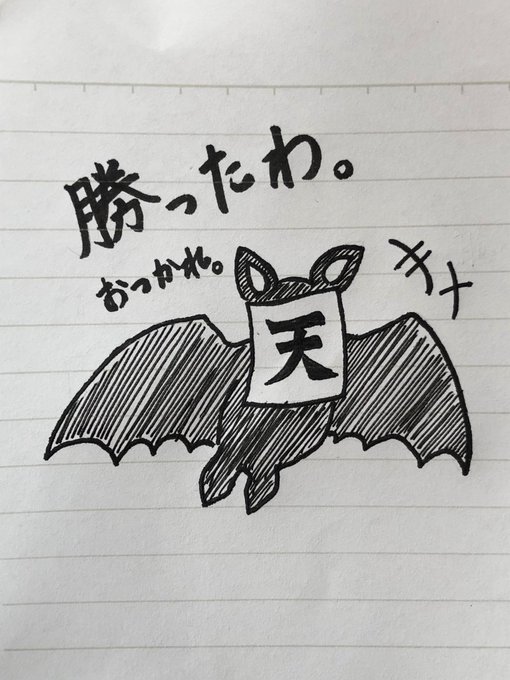 勝ったわ。
おつかれ。
キャ
天